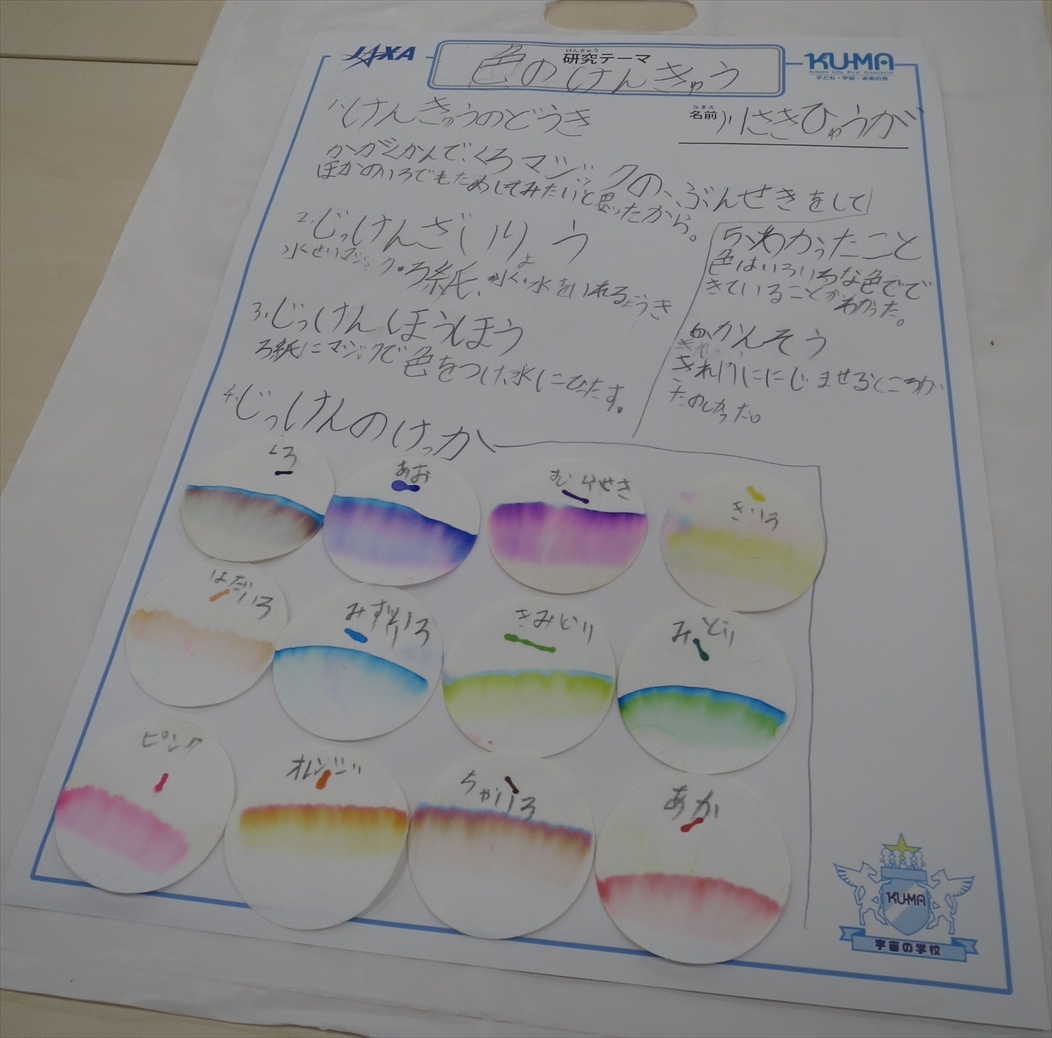 JAXA
研究テーマ
けんきゅう
色のけんきゅう
KU-MA
子ども・宇宙・未来の会
1.けんきゅうのどうき
名前
なまえ
川さきひゅうが
かがくかんで、くろマジックの、ぶんせきをして
ほかのいろでもためしてみたいと思ったから。
2.じっけんざいりょう
水せいマジック・ろ紙、水、水をいれるようき
3.じっけんほうほう
ろ紙にマジックで色をつけ、水にひたす。
4.じっけんのけっか
5.わかったこと
色はいろいろな色でで
きていることがわかった。
6.かんそう
きれいににじませるところが
たのしかった。
くろ
あお
むらせき
きいろ
はだいろ
みずいろ
きみどり
みどり
ピンク
オレンジ
ちゃいろ
あか
KU-MA
宇宙の学校